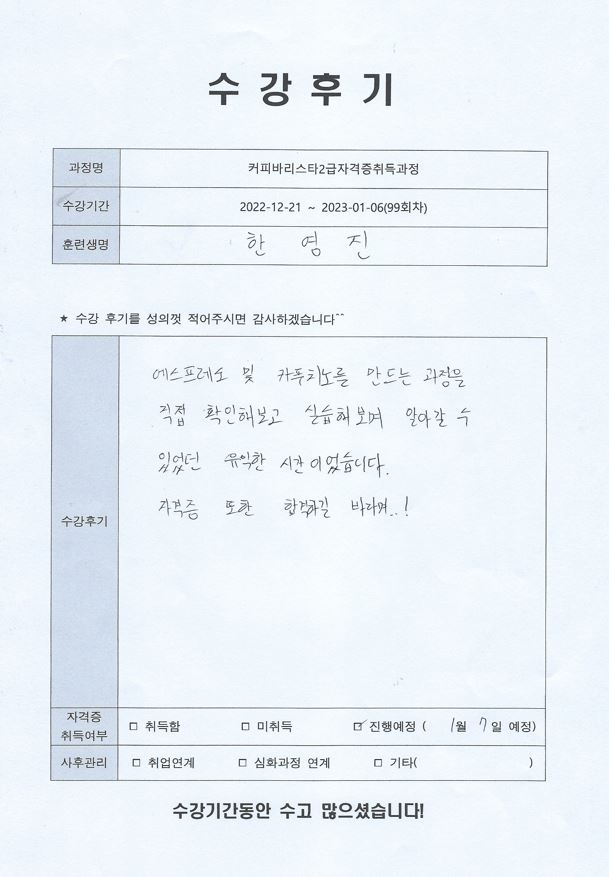 수강후기
과정명 커피바리스타2급자격증취득과정
수강기간 2022-12-21 ~ 2023-01-06(99회차)
훈련생명 한 영 진
★ 수강 후기를 성의껏 적어주시면 감사하겠습니다^^
수강후기
에스프레소 및 카푸치노를 만드는 과정을
직접 확인해보고 실습해보며 알아갈 수
있었던 유익한 시간이었습니다.
자격증 또한 합격하길 바라며..!
자격증 취득여부 □ 취득함 □ 미취득 ☑ 진행예정 ( 1월 7일 예정)
사후관리 □ 취업연계 □ 심화과정 연계 □ 기타( )
수강기간동안 수고 많으셨습니다!